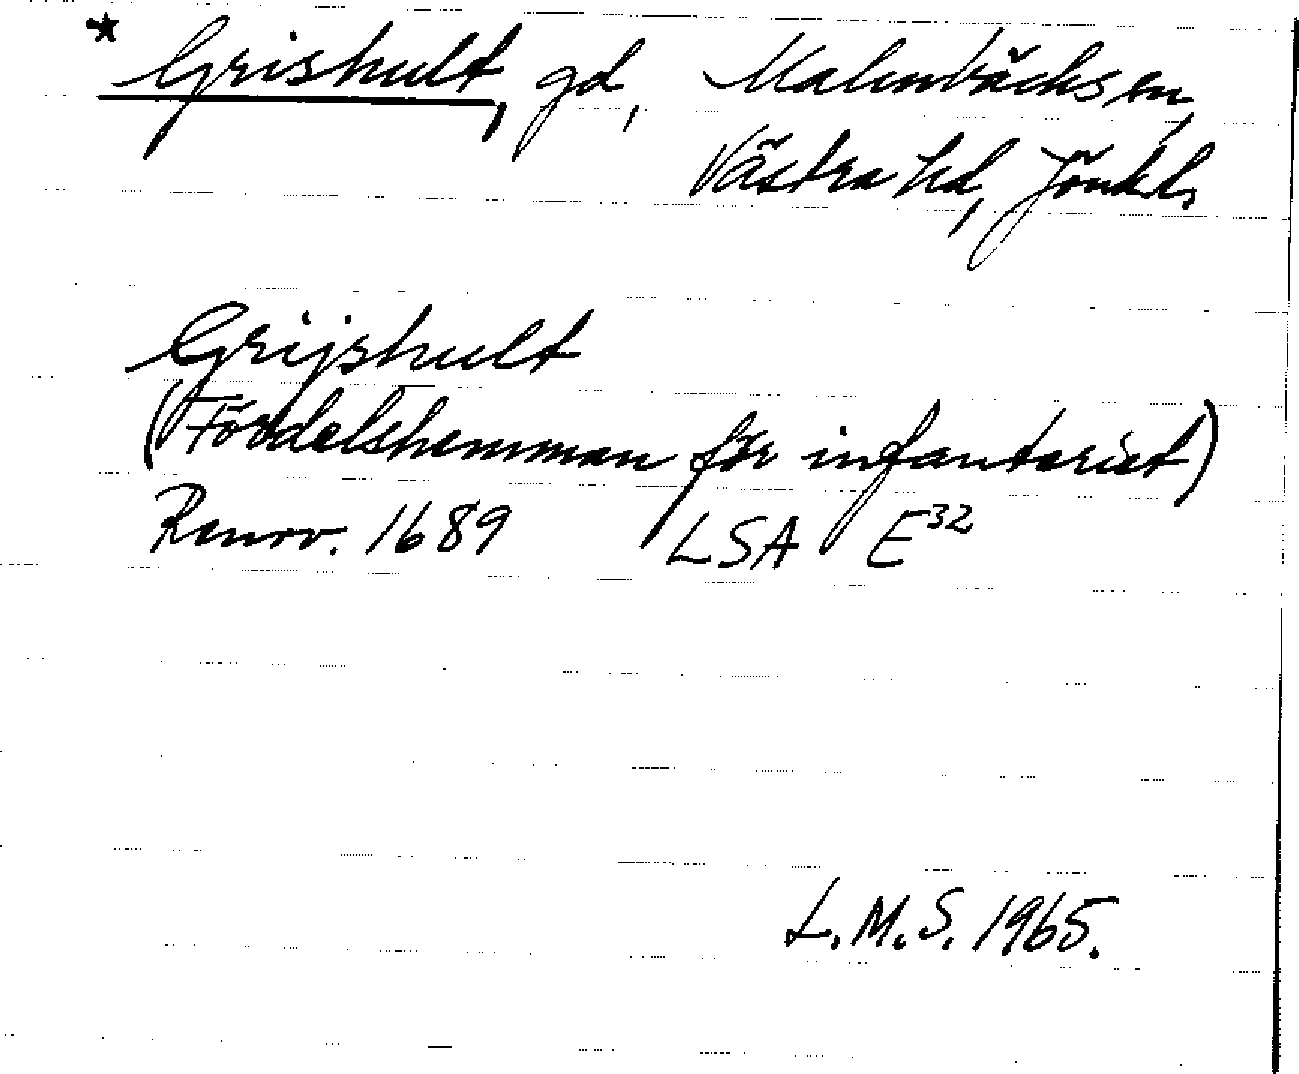 * Grishult, gd, Malmbäcks sn,
Västra hd, Jönk.l.
Grijshult
(Fördelshemman för infanteriet)
Renov. 1689 LSA E32
L.M.S. 1965.